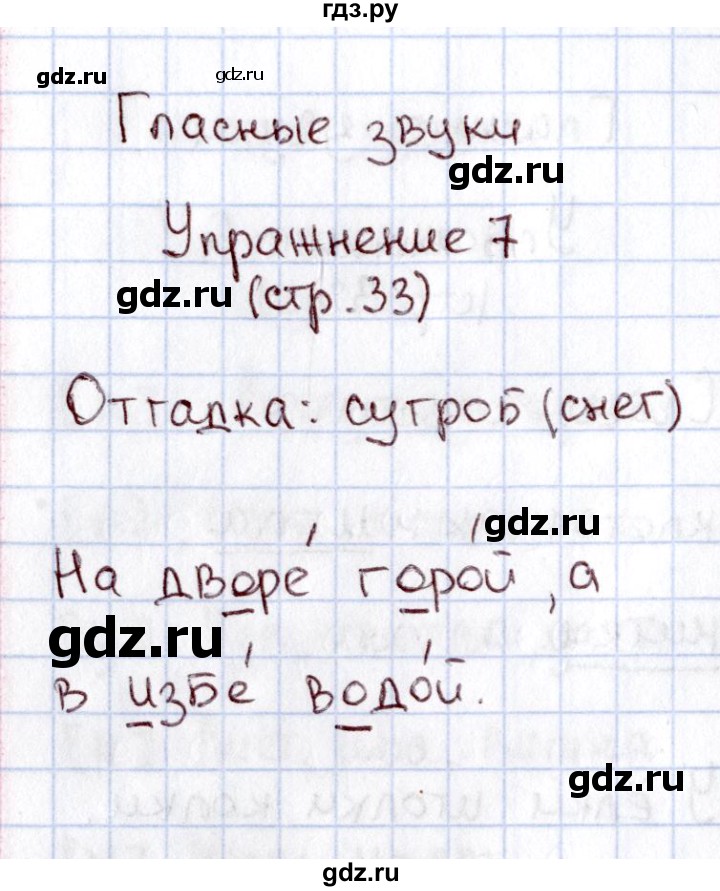 гдз.ру
gdz.ru gdz.ru
Гласные звуки
gdz.ru
Упражнение 7
gdz.ru (стр.33)
Отгадка: сугроб (снег)
gdz.ru
На дворе горой, а
gdz.ru
в избе водой.
gdz.ru
gdz.ru